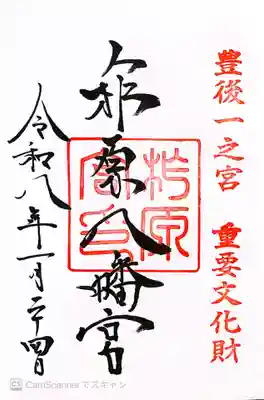 豊後一之宮 重要文化財
柞原八幡宮
柞原
宮印
令和八年一月二十四日
CS CamScanner でスキャン